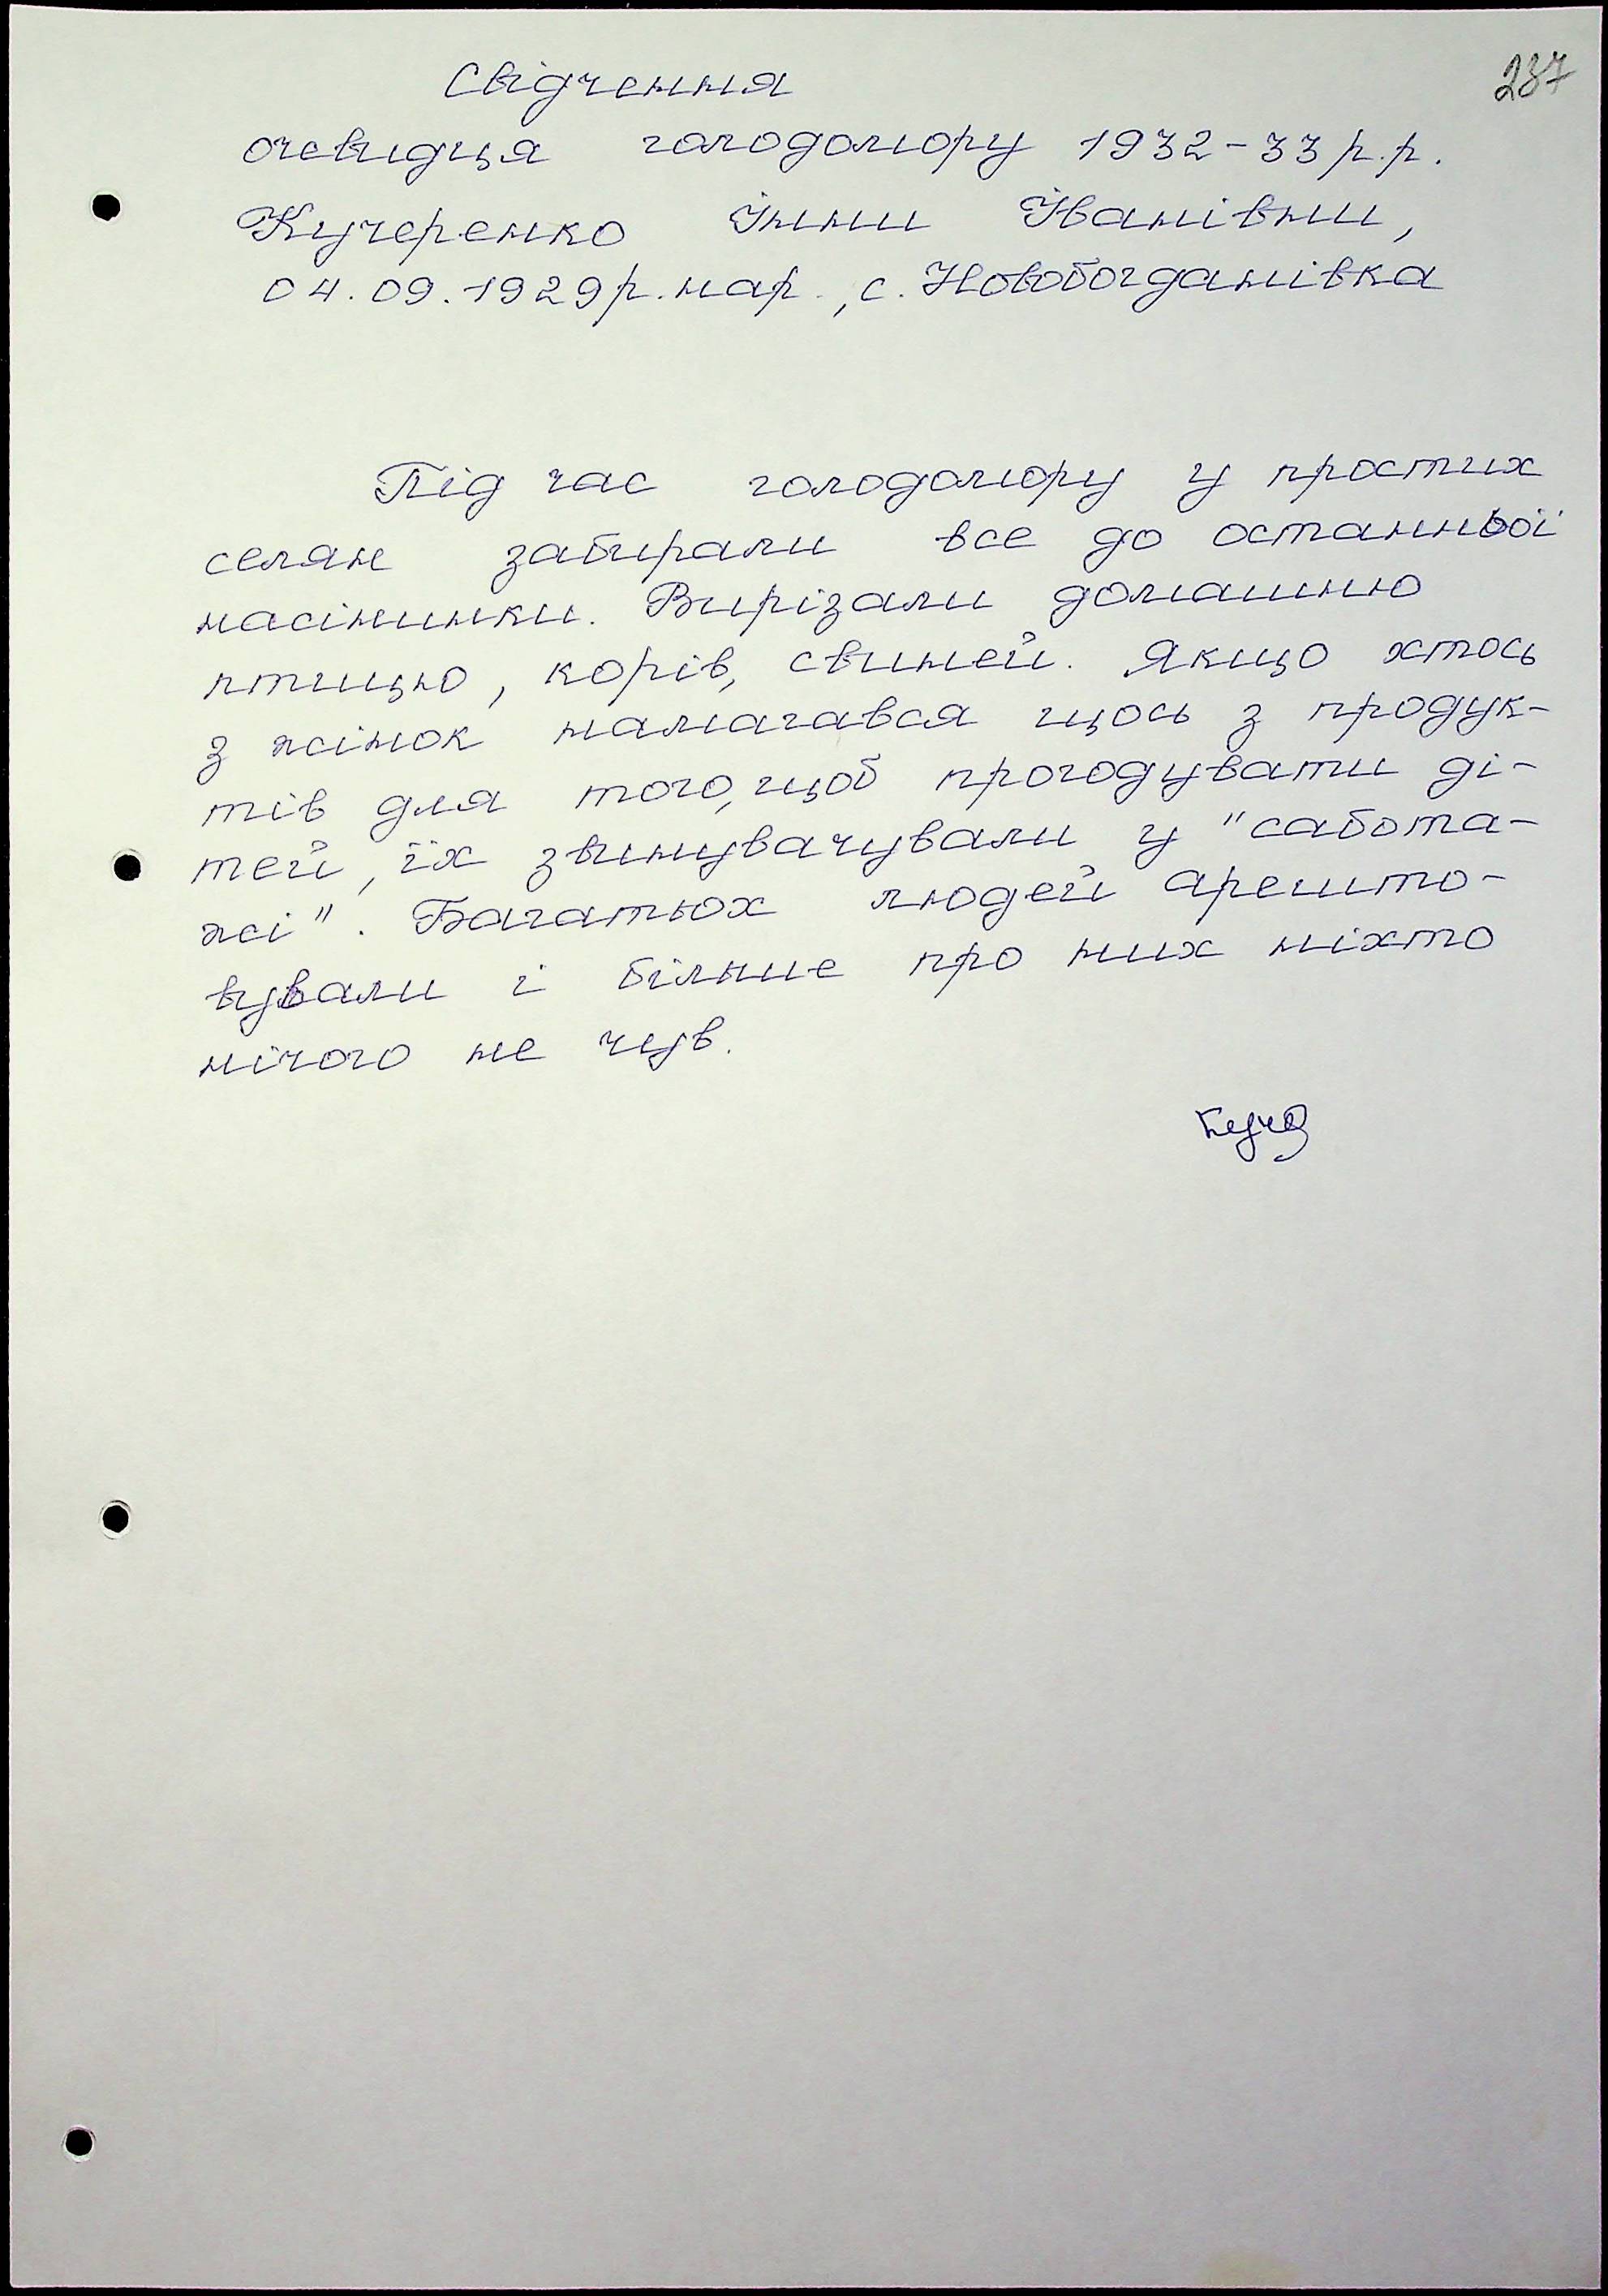 237
Свідчення
очевидця голодомору 1932-33 р.р.
Кучеренко Інни Іванівни,
04.09.1929 р. нар., с. Новобогданівка
Під час голодомору у простих
селян забирали все до останньої
насінинки. Вирізали домашню
птицю, корів, свиней. Якщо хтось
з жінок намагався щось з продук-
тів для того, щоб прогодувати ді-
тей, їх звинувачували у "сабота-
жі". Багатьох людей арешто-
вували і більше про них ніхто
нічого не чув.